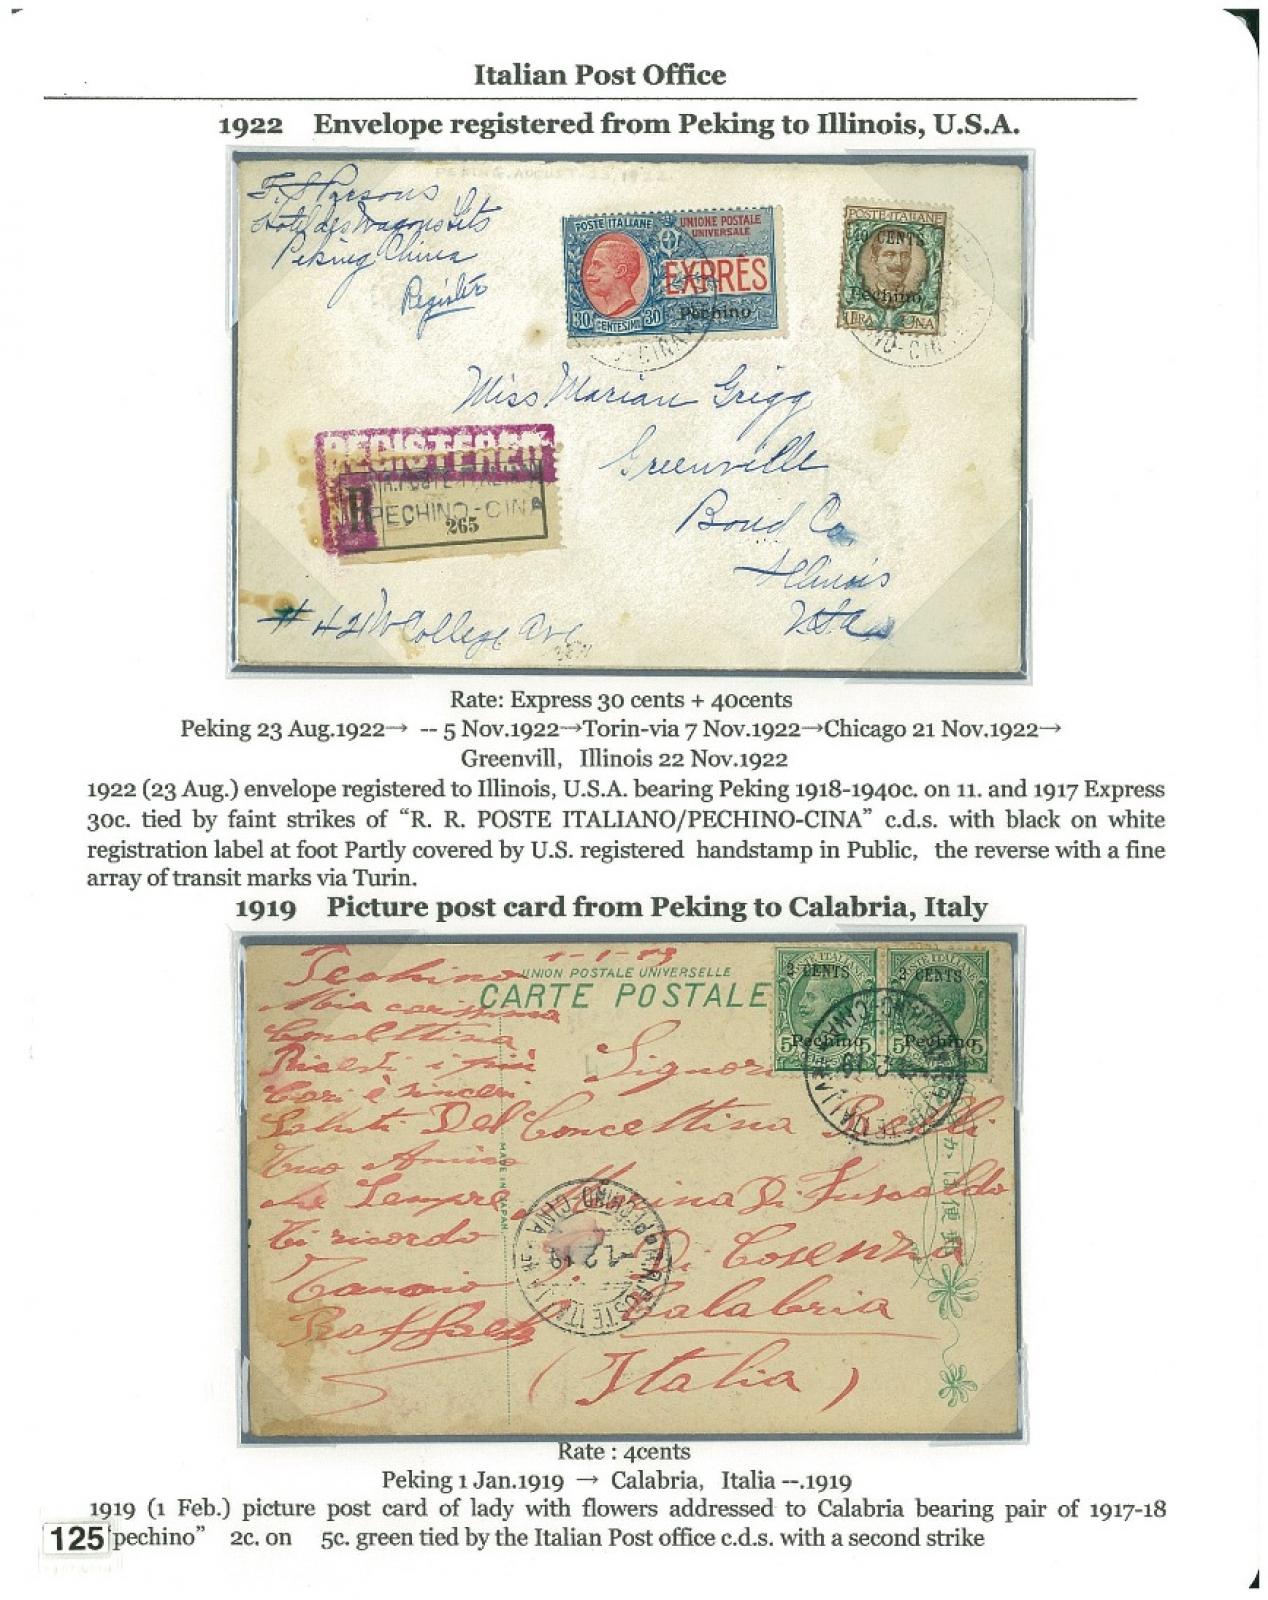 Italian Post Office
1922 Envelope registered from Peking to Illinois, U.S.A.
PEKING. AUGUST 23, 1922
F. S. Parsons
Hotel des Wagons Lits
Peking China
Register
POSTE ITALIANE UNIONE POSTALE
UNIVERSALE
EXPRÈS
30 CENTESIMI 30 Pechino
-CINA
POSTE·ITALIANE
40 CENTS
Pechino
1 LIRA UNA
NO-CIN
Miss Marian Grigg
Greenville
Bond Co.
Illinois
U.S.A.
REGISTERED
R PECHINO-CINA
265
# 421 W College Ave
Rate: Express 30 cents + 40cents
Peking 23 Aug.1922→ -- 5 Nov.1922→Torin-via 7 Nov.1922→Chicago 21 Nov.1922→
Greenvill, Illinois 22 Nov.1922
1922 (23 Aug.) envelope registered to Illinois, U.S.A. bearing Peking 1918-1940c. on 11. and 1917 Express
30c. tied by faint strikes of “R. R. POSTE ITALIANO/PECHINO-CINA” c.d.s. with black on white
registration label at foot Partly covered by U.S. registered handstamp in Public, the reverse with a fine
array of transit marks via Turin.
1919 Picture post card from Peking to Calabria, Italy
Pechino 1-1-19
UNION POSTALE UNIVERSELLE
CARTE POSTALE
POSTE ITALIANE POSTE ITALIANE
2 CENTS 2 CENTS
5 Pechino 5 5 Pechino 5
Mia carissima
Concettina
Ricevi i più
Cari è sinceri
Saluti Del
Tuo Amico
che Sempre
Ti ricordo
Raffaele
Signora
Concettina
Marina Di Fuscaldo
Di Cosenza
Calabria
(Italia)
MADE IN JAPAN
PECHINO CINA
1.2.19
R.R. POSTE ITALIANE
はか便郵
Rate : 4cents
Peking 1 Jan.1919 → Calabria, Italia --.1919
1919 (1 Feb.) picture post card of lady with flowers addressed to Calabria bearing pair of 1917-18
125 “pechino” 2c. on 5c. green tied by the Italian Post office c.d.s. with a second strike